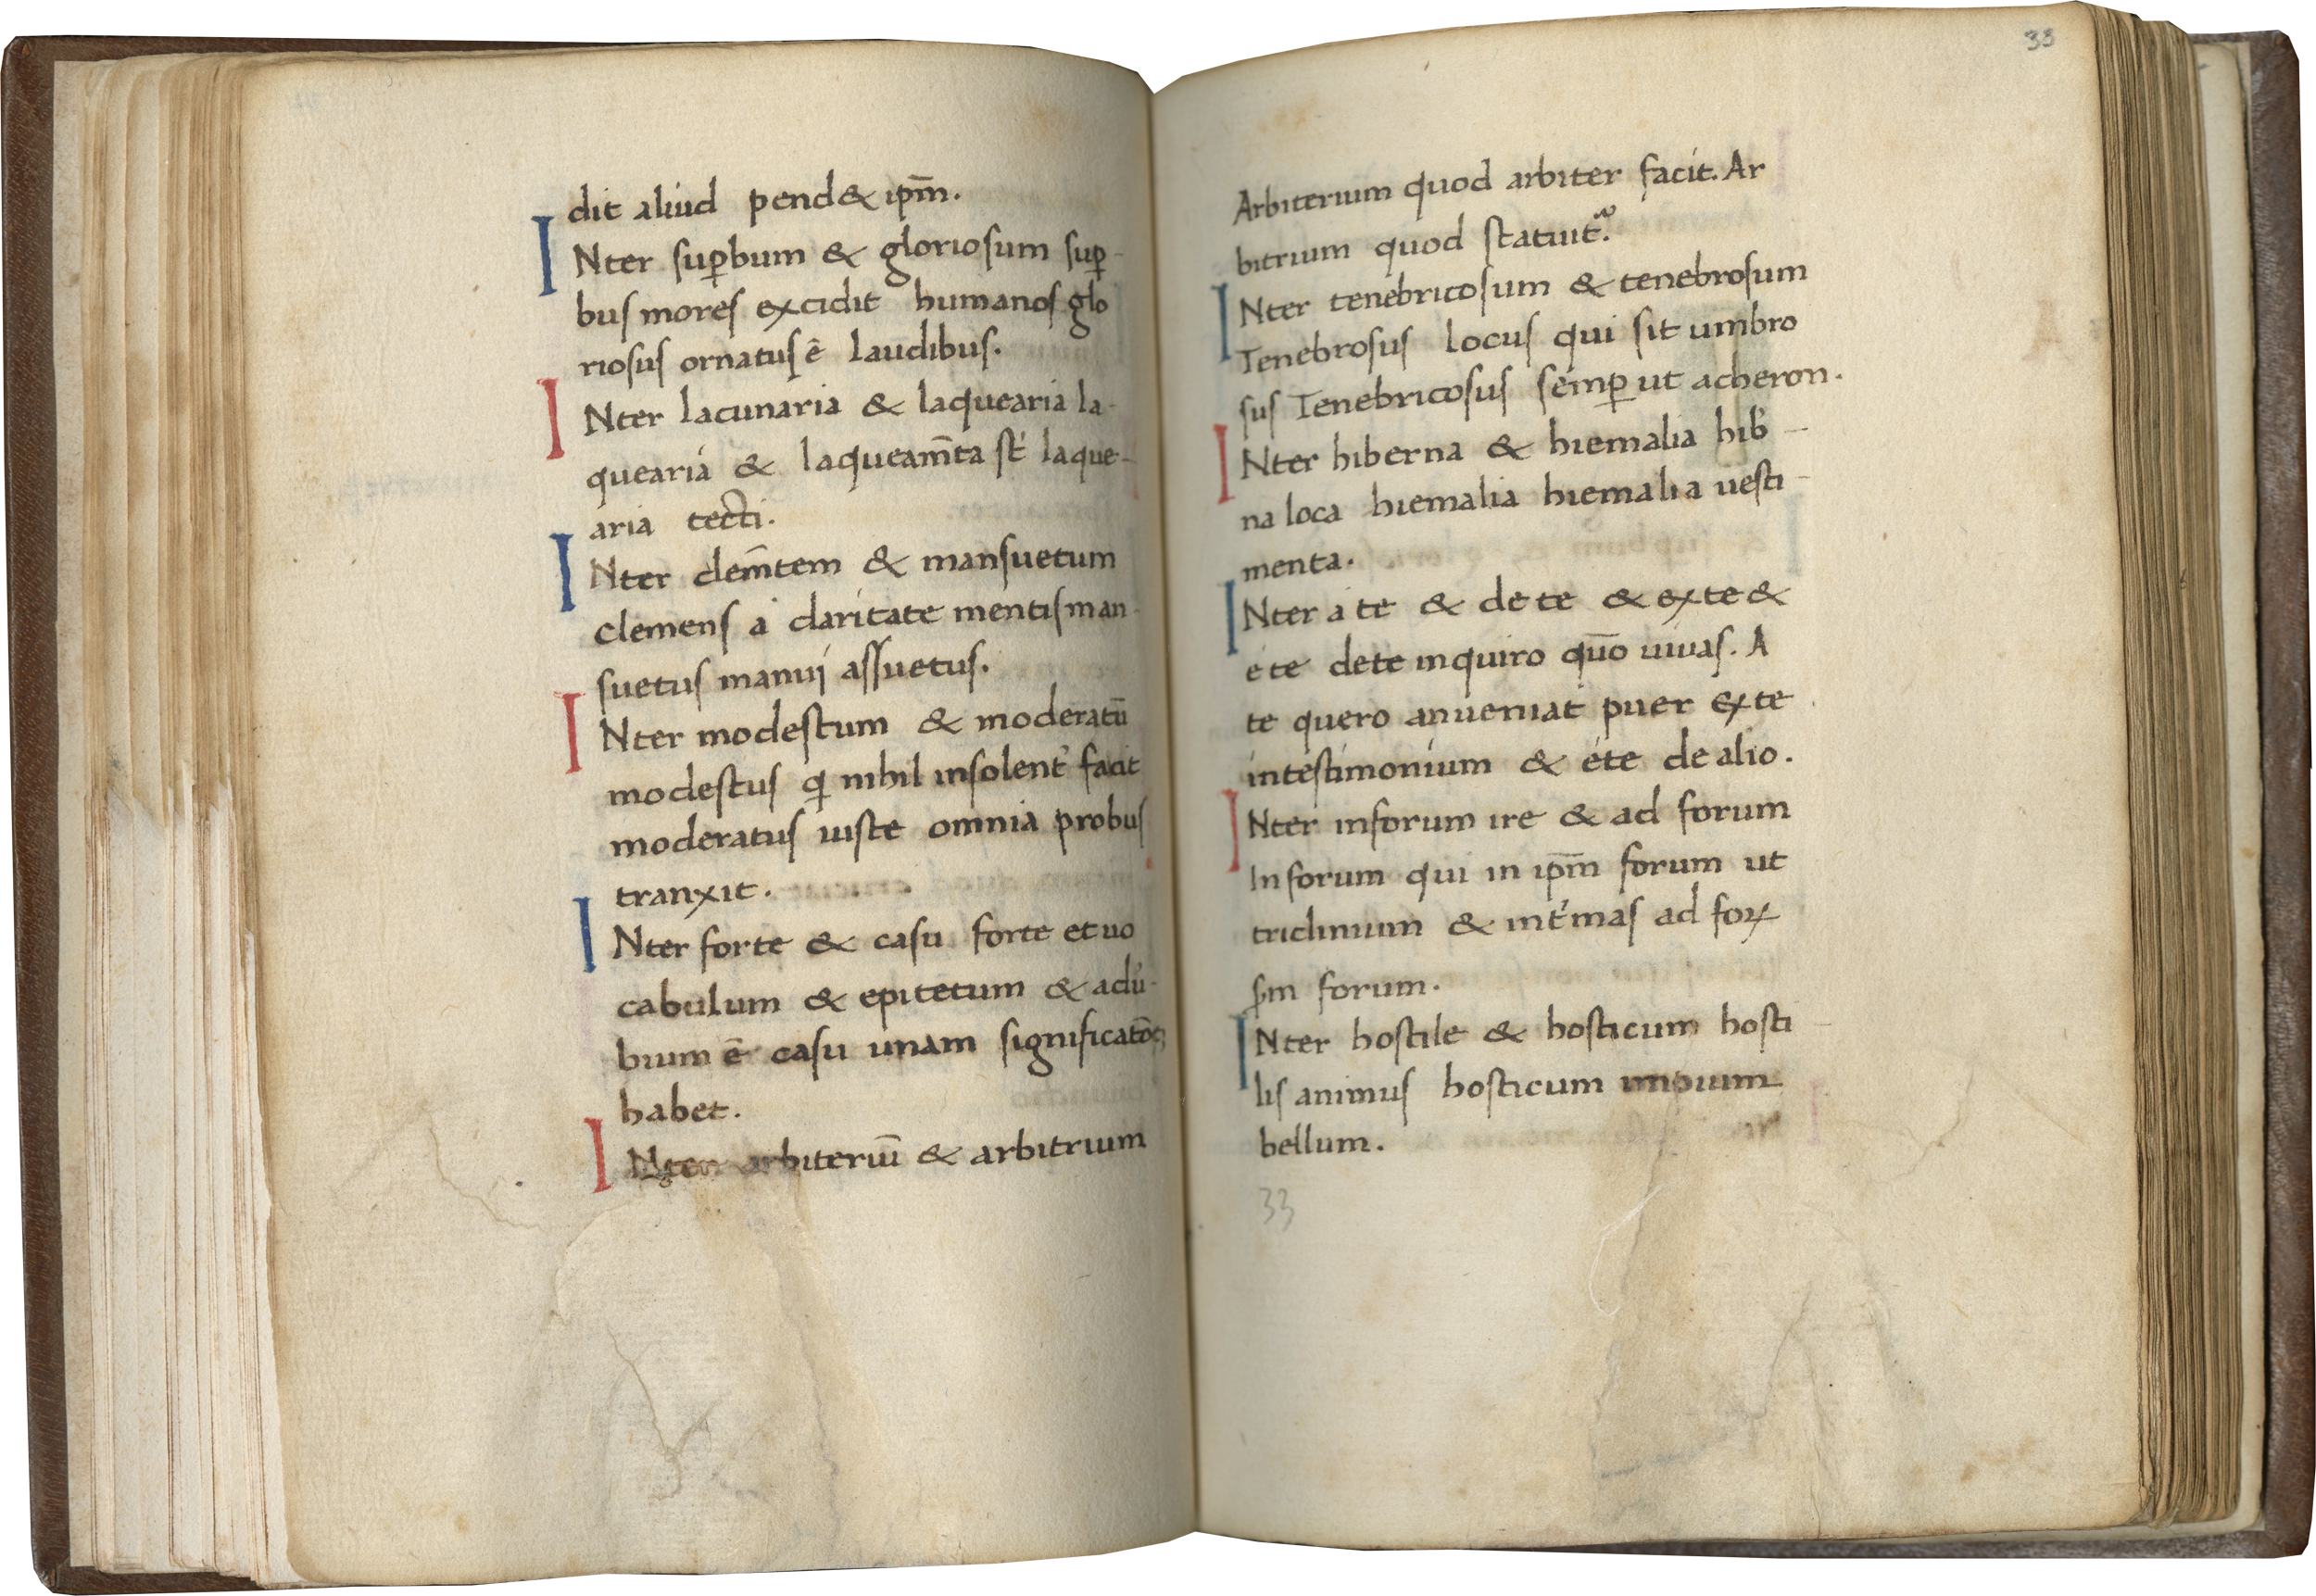 dit aliud pend& ip̄m.
INter sup̲bum & gloriosum sup̲-
bus mores excidit humanos glo
riosus ornatus ē laudibus.
INter lacunaria & laquearia la-
quearia & laqueam̄ta st̉ laque-
aria tecti.
INter clem̄tem & mansuetum
clemens a claritate mentis man-
suetus manuj assuetus.
INter modestum & moderatū
modestus qi nihil insolent̉ facit
moderatus iuste omnia probus
tranxit.
INter forte & casu forte et uo
cabulum & epitetum & adu̓-
bium ē casu unam significatōē
habet.
INter arbiteriū & arbitrium
33
Arbiterium quod arbiter facit. Ar
bitrium quod statuit.
INter tenebricosum & tenebrosum
Tenebrosus locus qui sit umbro
sus Tenebricosus semp̲ ut acheron.
INter hiberna & hiemalia hib̓-
na loca hiemalia hiemalia uesti-
menta.
INter a te & de te & ex te &
e te de te inquiro quō uiuas. A
te quero an ueniat puer ex te
in testimonium & e te de alio.
INter in forum ire & ad forum
In forum qui in ip̄m forum ut
triclinium & int̓mas ad forꝝ
ꝓm forum.
INter hostile & hosticum hosti-
lis animus hosticum
bellum.
33